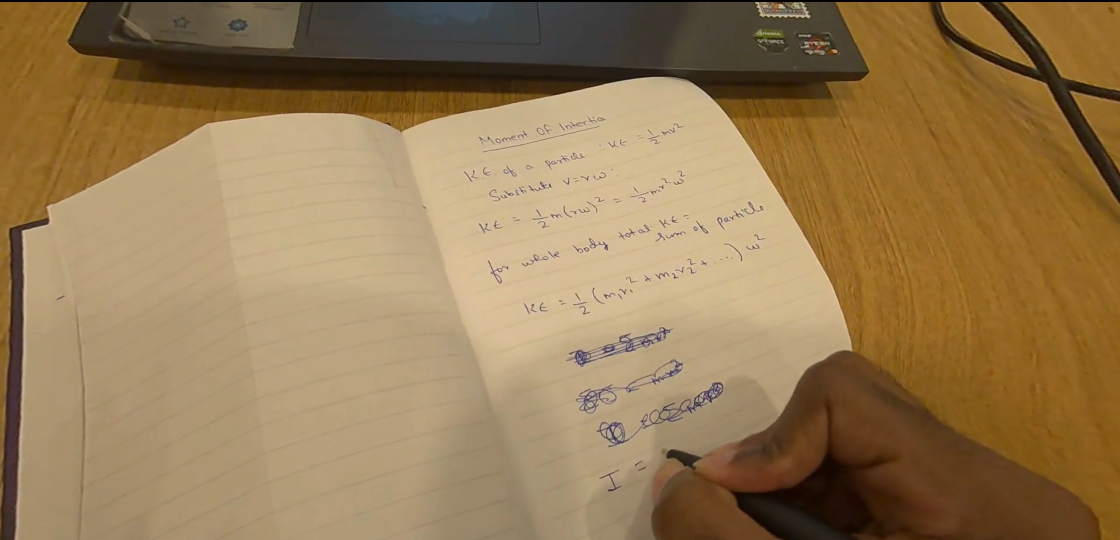 Moment Of Intertia
KE of a particle : KE = 1/2 mv²
Substitute v=rω:
KE = 1/2 m(rω)² = 1/2 mr²ω²
for whole body total KE =
sum of particle
KE = 1/2 (m₁r₁² + m₂r₂² + ....) ω²
I =
GEFORCE
RYZEN